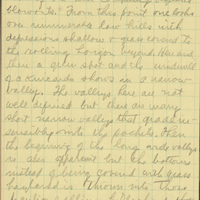 blowouts." From this point one looks
over numerous low hills with
depressions shallow & grass covered to
the rolling horizon beyond. Here and
then a green spot and the windmill
of a Kincaider shows in a narrow
valley. The valleys here are not
well defined but there are many
short narrow valleys that grade in-
sensibly into the pockets. Then
the beginning of the long wide valleys
is also apparent but the bottoms
instead of being covered with grass
hayland is thrown into those